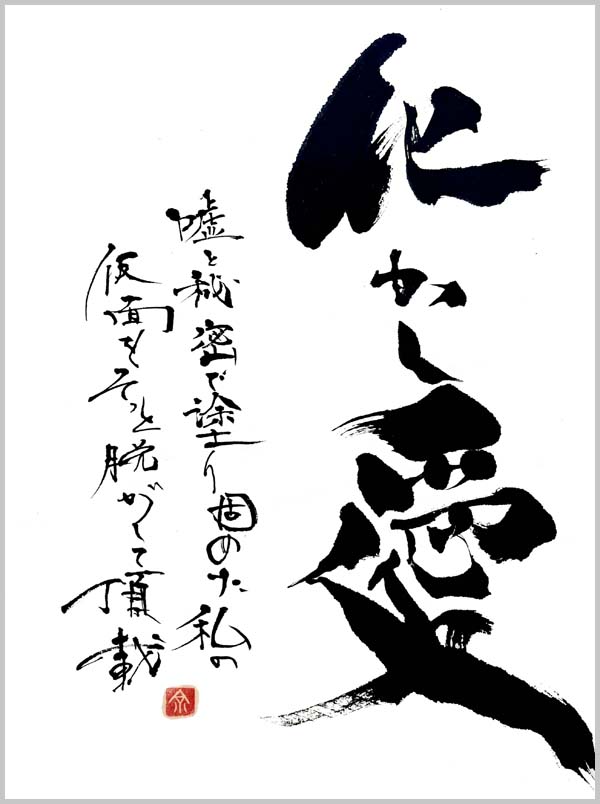 化かし愛
嘘と秘密で塗り固めた私の
仮面をそっと脱がして頂戴